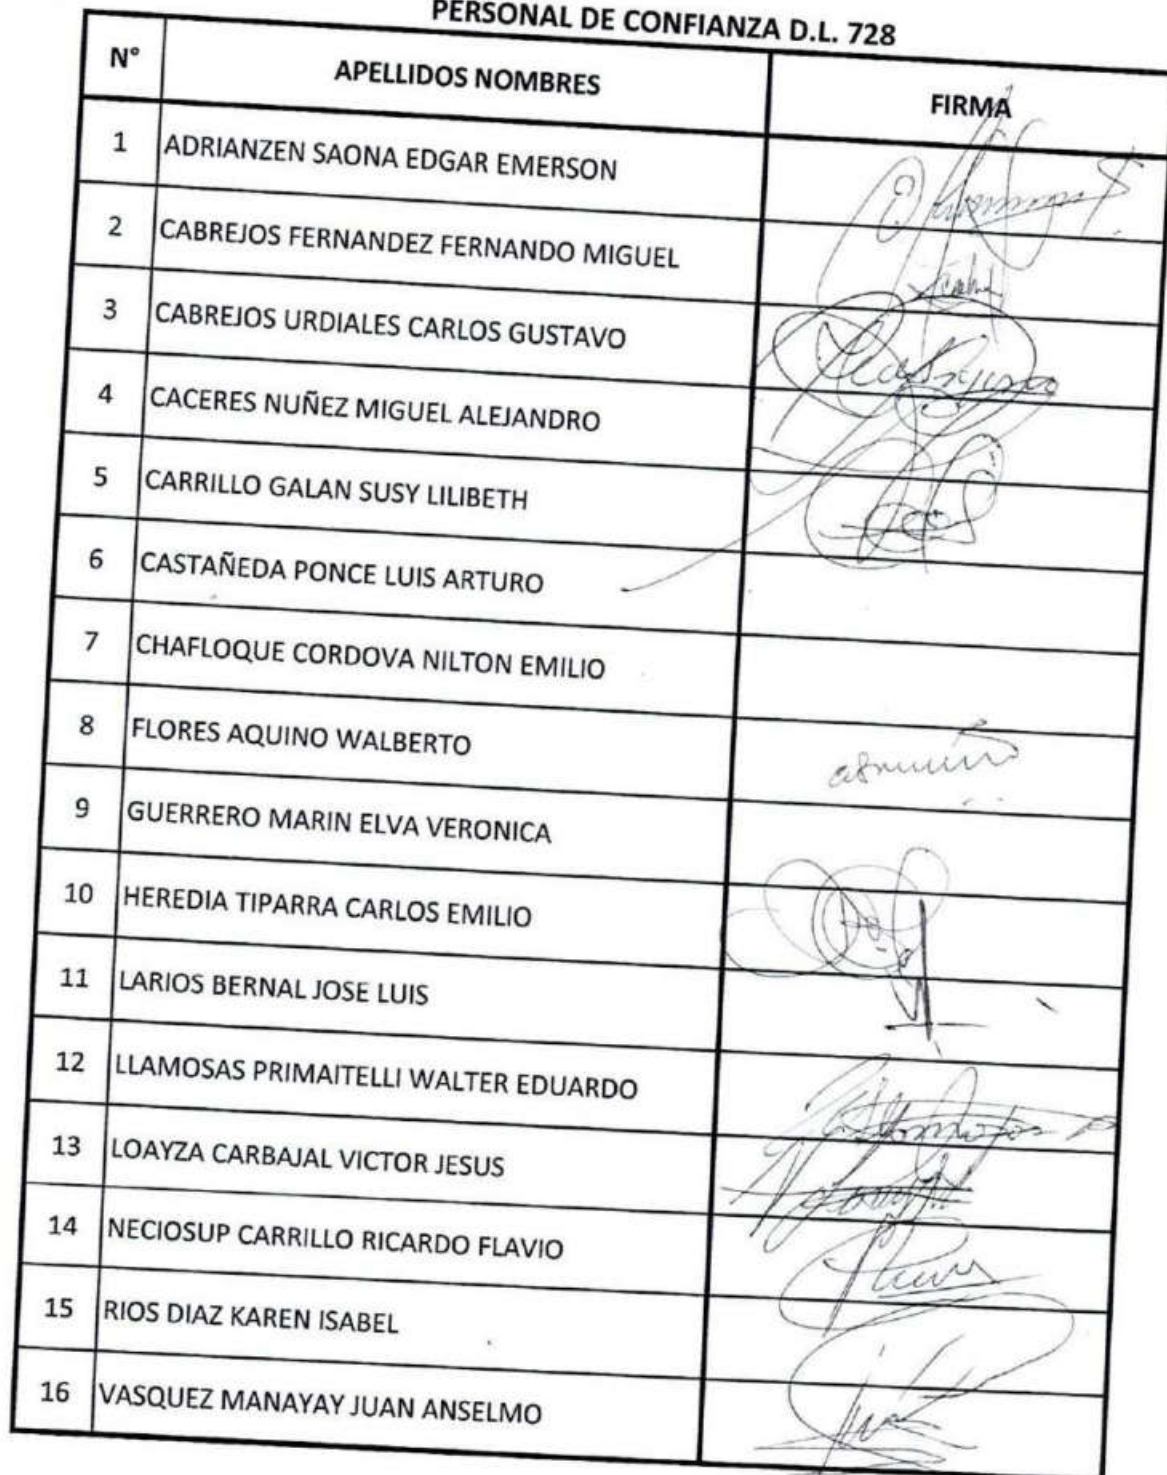 PERSONAL DE CONFIANZA D.L. 728
N° APELLIDOS NOMBRES FIRMA
1 ADRIANZEN SAONA EDGAR EMERSON
2 CABREJOS FERNANDEZ FERNANDO MIGUEL
3 CABREJOS URDIALES CARLOS GUSTAVO
4 CACERES NUÑEZ MIGUEL ALEJANDRO
5 CARRILLO GALAN SUSY LILIBETH
6 CASTAÑEDA PONCE LUIS ARTURO
7 CHAFLOQUE CORDOVA NILTON EMILIO
8 FLORES AQUINO WALBERTO
9 GUERRERO MARIN ELVA VERONICA
10 HEREDIA TIPARRA CARLOS EMILIO
11 LARIOS BERNAL JOSE LUIS
12 LLAMOSAS PRIMAITELLI WALTER EDUARDO
13 LOAYZA CARBAJAL VICTOR JESUS
14 NECIOSUP CARRILLO RICARDO FLAVIO
15 RIOS DIAZ KAREN ISABEL
16 VASQUEZ MANAYAY JUAN ANSELMO